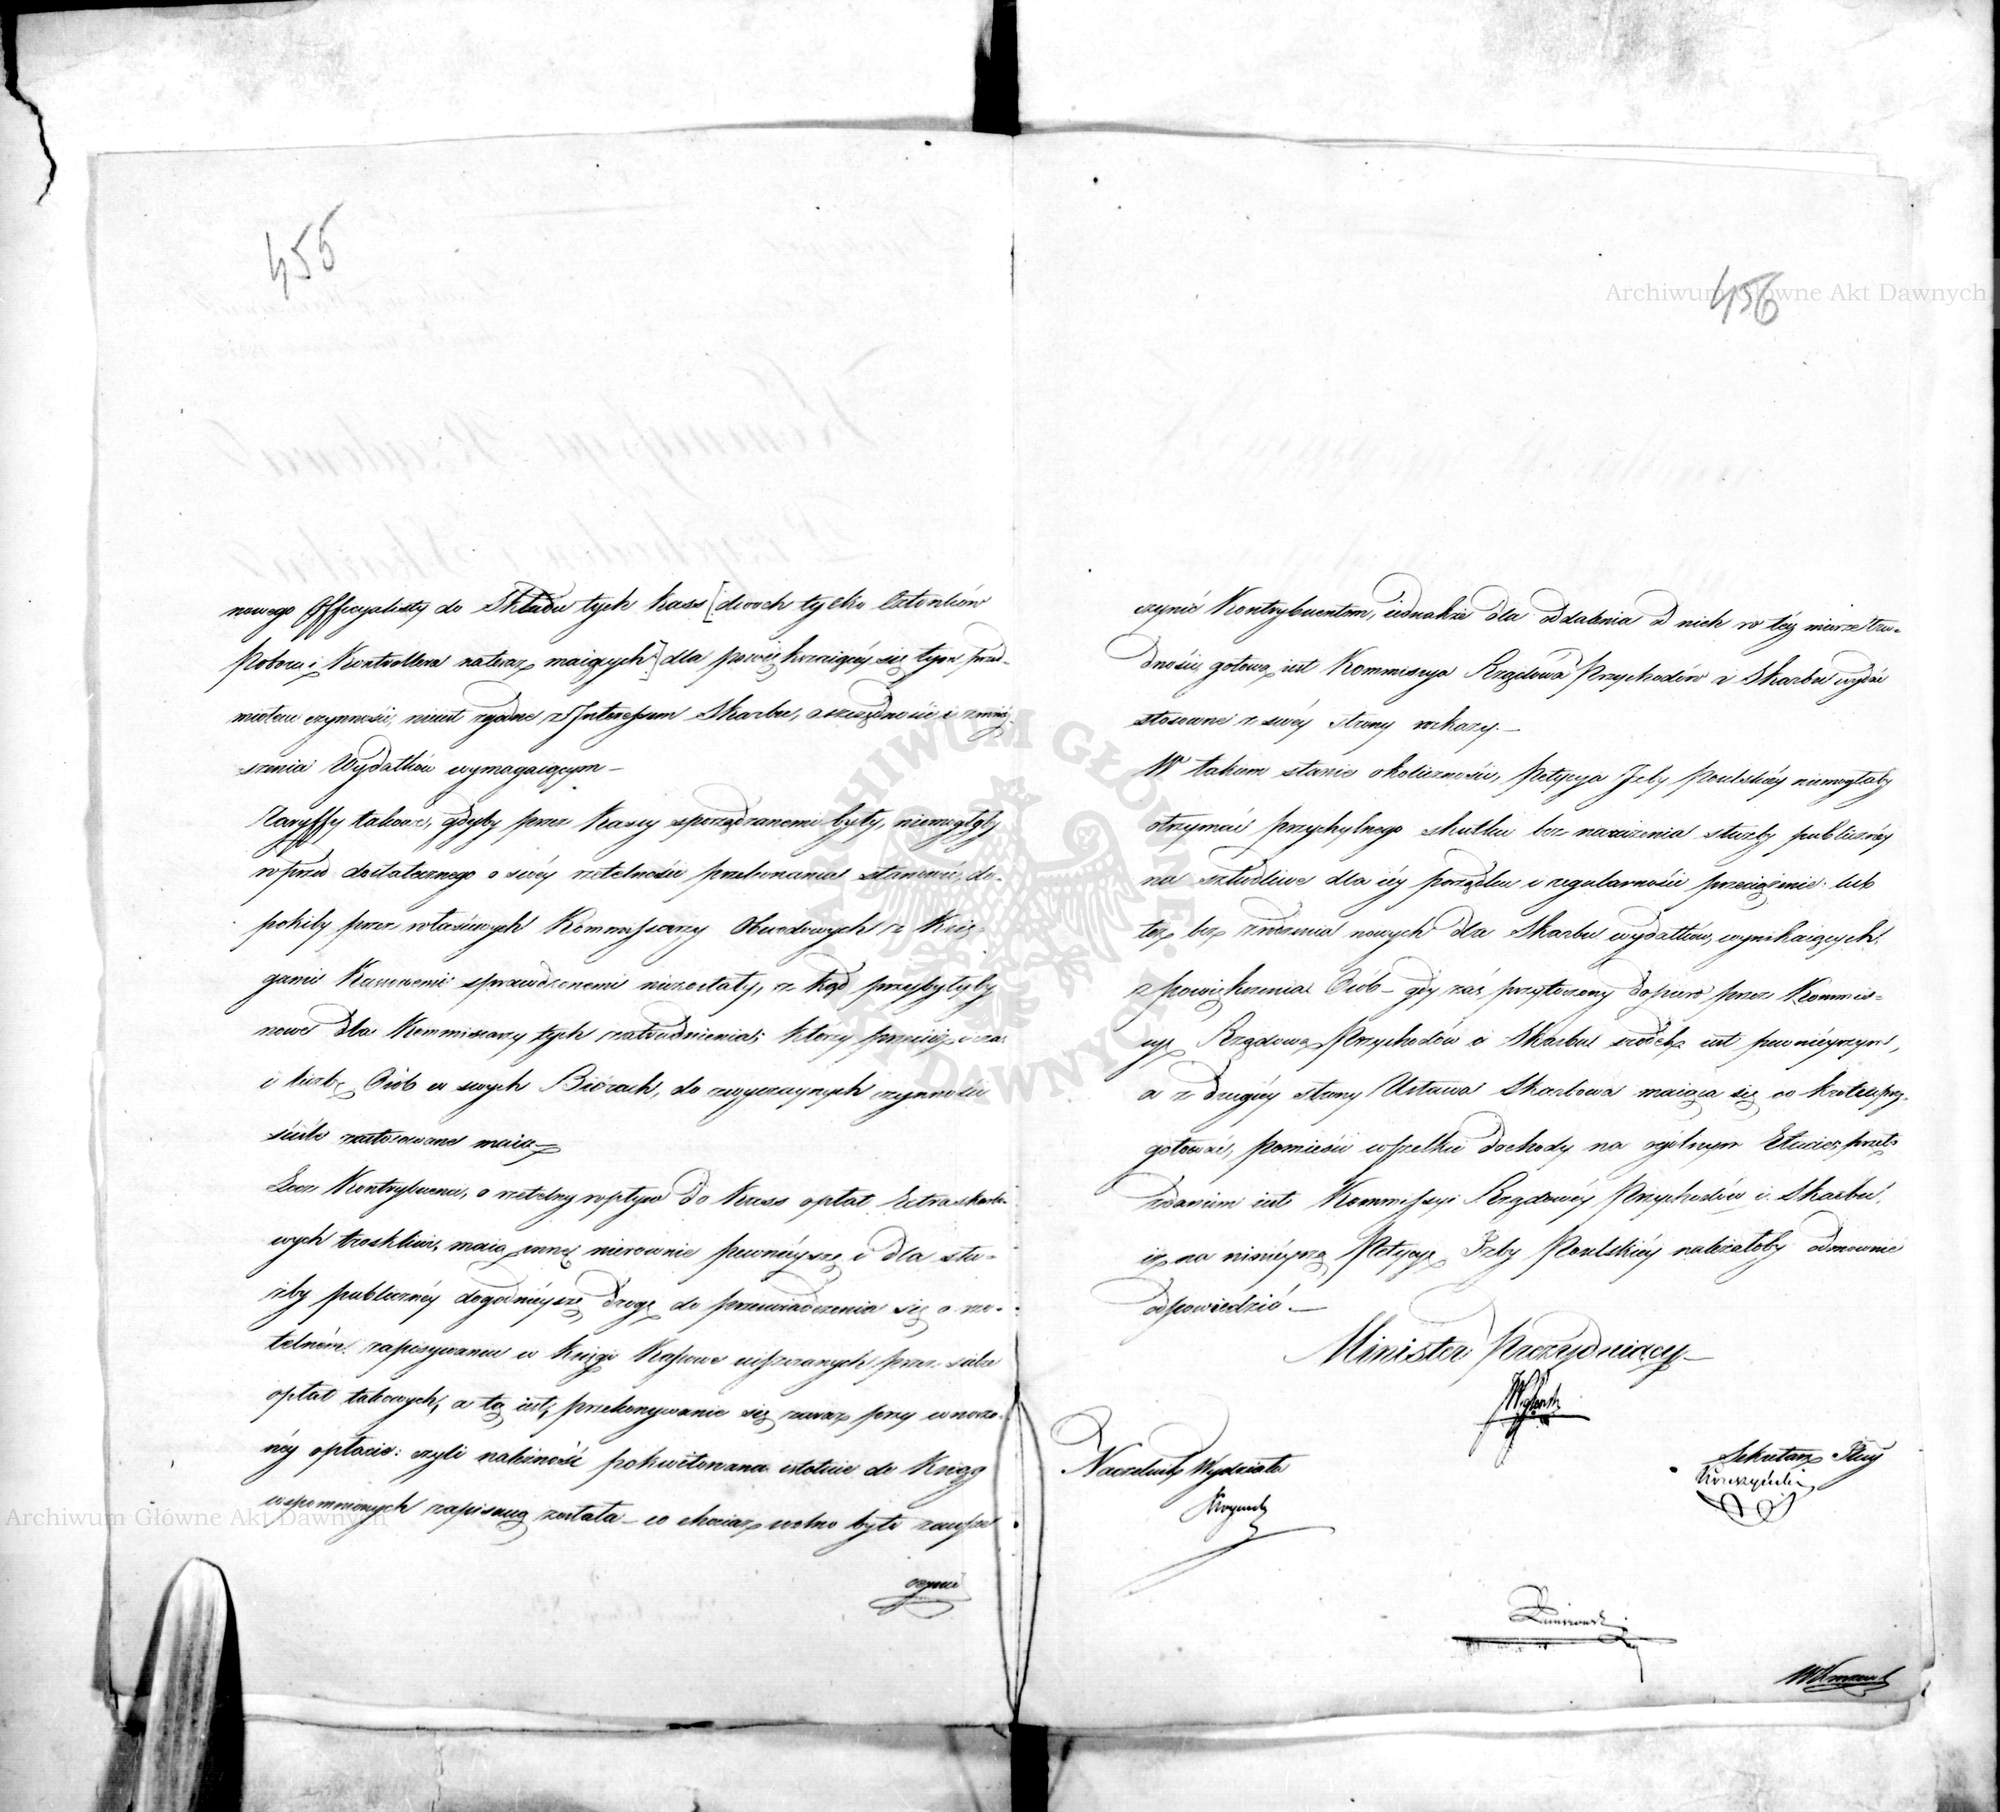 455
nowego Officyalisty do Składu tych Kass [dwóch tylko Członków
Poborcę i Kontrollera nateraz maiących] dla powiększaiącey się tym przed-
miotem czynności, nieiest zgodne z Interessem Skarbu, oszczędności i zmniey-
szenia Wydatków wymagaiącym –
Taryffy takowe, gdyby przez Kassy sporządzanemi były, niemogłyby
wprzód dostatecznego o swéy rzetelności przekonania stanowić, do-
pókiby przez właściwych Kommissarzy Obwodowych z Xię-
gami Kassowemi sprawdzonemi niezostały, z kąd przybyłyby
nowe dla Kommissarzy tych zatrudnienia; którzy przecież czas
i liczbę Osób w swych Biórach, do zwyczaynych czynności
ściśle zastosowane maią –
Lecz Kontrybuenci, o rzetelny wpływ do Kass opłat Extraskarbo-
wych troskliwi, maią inną nierównie pewnieyszę i dla słu-
żby publicznéy dogodnieyszę drogę do przeświadczenia się o rze-
telném zapisywaniu w Księgi Kassowe uiszczanych przez siebie
opłat takowych, a tą iest, przekonywanie się zaraz przy wnoszo-
néy opłacie: czyli należność pokwitowana istotnie do Xiąg
wspomnionych zapisaną została – co chociaż wolno było zawsze
czynić
456
czynić Kontrybuentom, iednakże dla oddalenia od nich w téy mierze tru-
dności, gotową iest Kommissya Rządowa Przychodów i Skarbu wydać
stosowne z swéy strony rozkazy. –
W takim stanie okoliczności, Petycya Izby Poselskiéy niemogłaby
otrzymać przychylnego skutku bez narażenia służby publicznéy
na szkodliwe dla iéy porządku i regularności przeciążenie: lub
też bez zrodzenia nowych dla Skarbu wydatków, wynikaiących
z powiększenia Osób – gdy zaś przytoczony dopiero przez Kommis-
syę Rządową Przychodów i Skarbu środek iest pewnieyszym,
a z drugiéy strony Ustawa Skarbowa maiąca się w krótce przy-
gotować, pomieści wszelkie dochody na ogólnym Etacie; przeto
zdaniem iest Kommissyi Rządowéy Przychodów i Skarbu,
iż na ninieyszą Petycyę Izby Poselskiéy należałoby odmownie
odpowiedzić. –
Minister Prezyduiący –
Naczelnik Wydziału
Sekretarz Jlny
Archiwum Główne Akt Dawnych
Archiwum Główne Akt Dawnych
ARCHIWUM GŁÓWNE AKT DAWNYCH